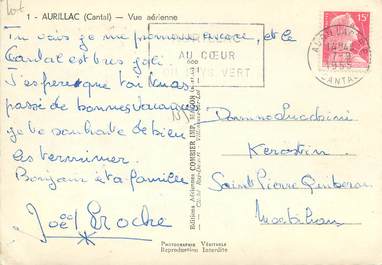 lot
1 - AURILLAC (Cantal) — Vue aérienne
Tu vois je me promène encore, et le
Cantal est bres joli.
J'espère que toi tu as
passé de bonnes vacances
je te souhaite de bien
les terminer.
Bonjour à ta famille
Joël Broche
AU CŒUR
VERT
AURILLAC
7-9
1955
CANTAL
15F
Editions Aériennes COMBIER IMP. MACON
Kerostin
Saint Pierre Quiberon
Morbihan
PHOTOGRAPHIE VÉRITABLE
Reproduction Interdite